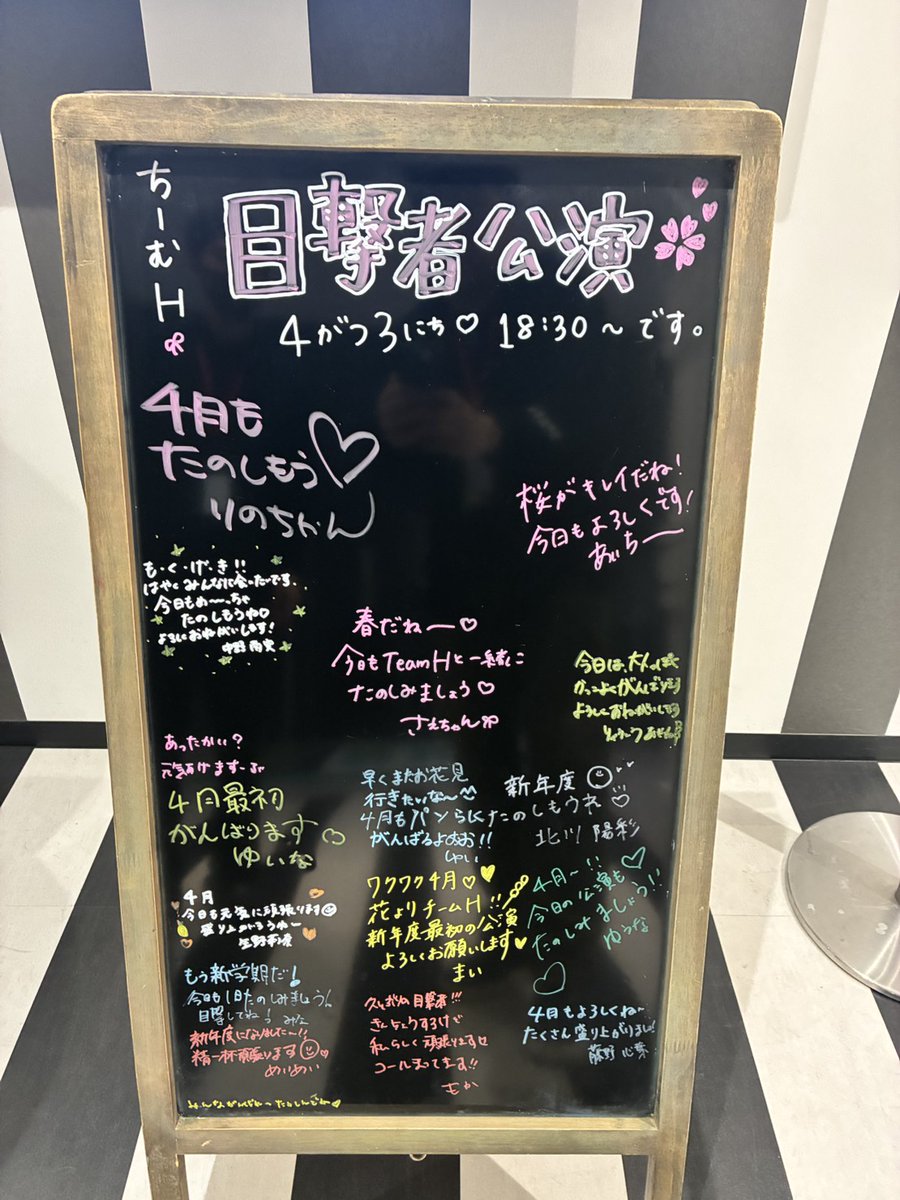 ちーむH
目撃者公演
4がつ3にち♡ 18:30～です。
4月も
たのしもう♡
りのちゃん
桜がキレイだね!
今日もよろしくです!
あぃちー
も・く・げ・き!!
はやくみんなに会いたいです。
今日もめーーっちゃ
たのしもうね♡
よろしくおねがいします!
春だねー♡
今日もTeamHと一緒に
たのしみましょう♡
さえちゃん
今日は、大人っぽく
かっこよくがんばります
よろしくおねがいします
あったかい?
4月最初
がんばります
ゆいな
早くまたお花見
行きたいな〜
4月もパンらく
がんばるよぉお!!
ゆい
新年度
たのしもうネ♡
北川 陽彩
4月
今日も元気に頑張ります
盛り上がろうねー
ワクワク4月♡
花よりチームH!!
新年度最初の公演
よろしくお願いします
まい
4月〜!!
今日の公演も
たのしみましょう!!
ゆうな
もう新学期だ!
今日も1日たのしみましょう
目撃してね!
新年度になりましたー!!
精一杯頑張ります
めいめい
久しぶりの目撃者!!!
きんちょうするけど
私らしく頑張ります
コール待ってます!!
もか
4月もよろしくね〜
たくさん盛り上がりましょ!
藤野 心葉